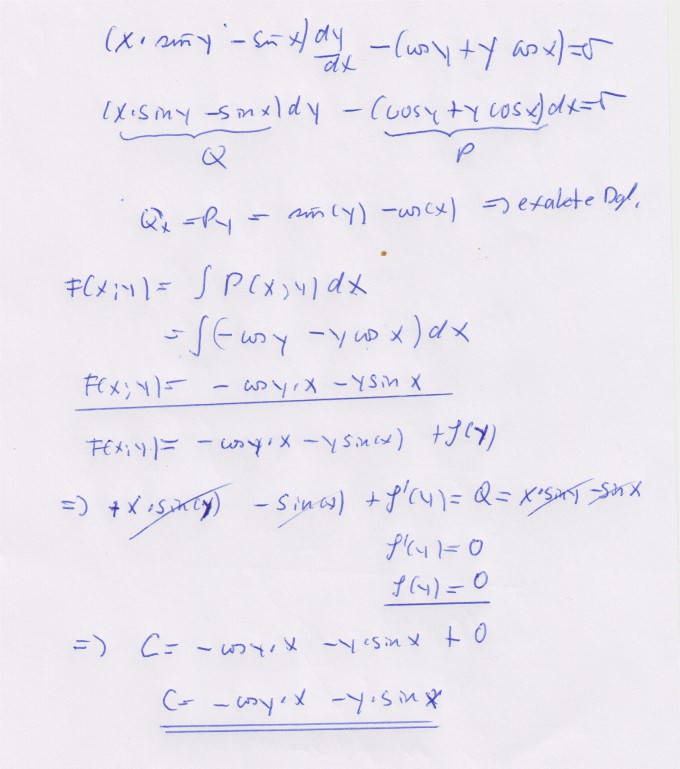 (x · sin y - sin x) dy/dx - (cos y + y cos x) = 0
(x · sin y - sin x) dy - (cos y + y cos x) dx = 0
Q P
Qx = Py = sin(y) - cos(x) => exakte Dgl.
F(x;y) = ∫ P(x;y) dx
= ∫(-cos y - y cos x) dx
F(x;y) = - cos y · x - y sin x
F(x;y) = - cos y · x - y sin(x) + f(y)
=> + x · sin(y) - sin(x) + f'(y) = Q = x · sin y - sin x
f'(y) = 0
f(y) = 0
=> C = - cos y · x - y · sin x + 0
C = - cos y · x - y · sin x